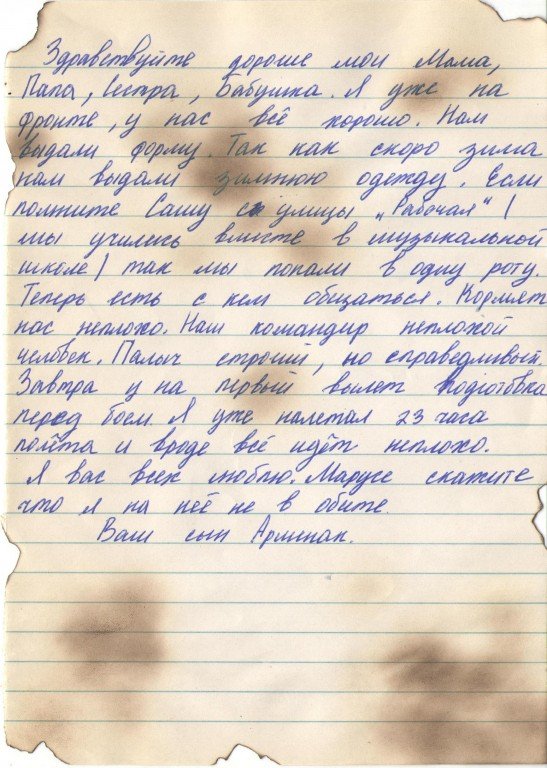 Здравствуйте дорогие мои Мама,
Папа, Сестра, Бабушка. Я уже на
фронте, у нас всё хорошо. Нам
выдали форму. Так как скоро зима
нам выдали зимнюю одежду. Если
помните Сашу с улицы „Рабочая" (
мы учились вместе в музыкальной
школе) так мы попали в одну роту.
Теперь есть с кем общаться. Кормят
нас неплохо. Наш командир неплохой
человек. Палыч строгий, но справедливый.
Завтра у на первый вылет подготовка
перед боем. Я уже налетал 23 часа
полёта и вроде всё идёт неплохо.
Я вас всех люблю. Марусе скажите
что я на неё не в обите.
Ваш сын Арменак.